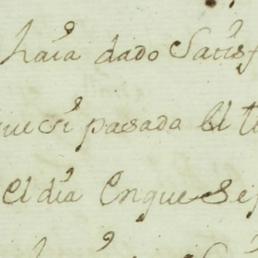 haia dado Satisf
que si pasada el t
el dia Enque se